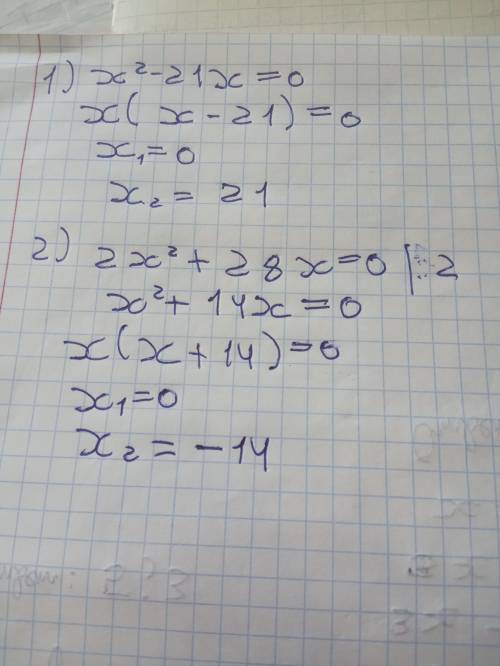 1) x² - 21x = 0
x(x - 21) = 0
x₁ = 0
x₂ = 21
2) 2x² + 28x = 0 | : 2
x² + 14x = 0
x(x + 14) = 0
x₁ = 0
x₂ = -14